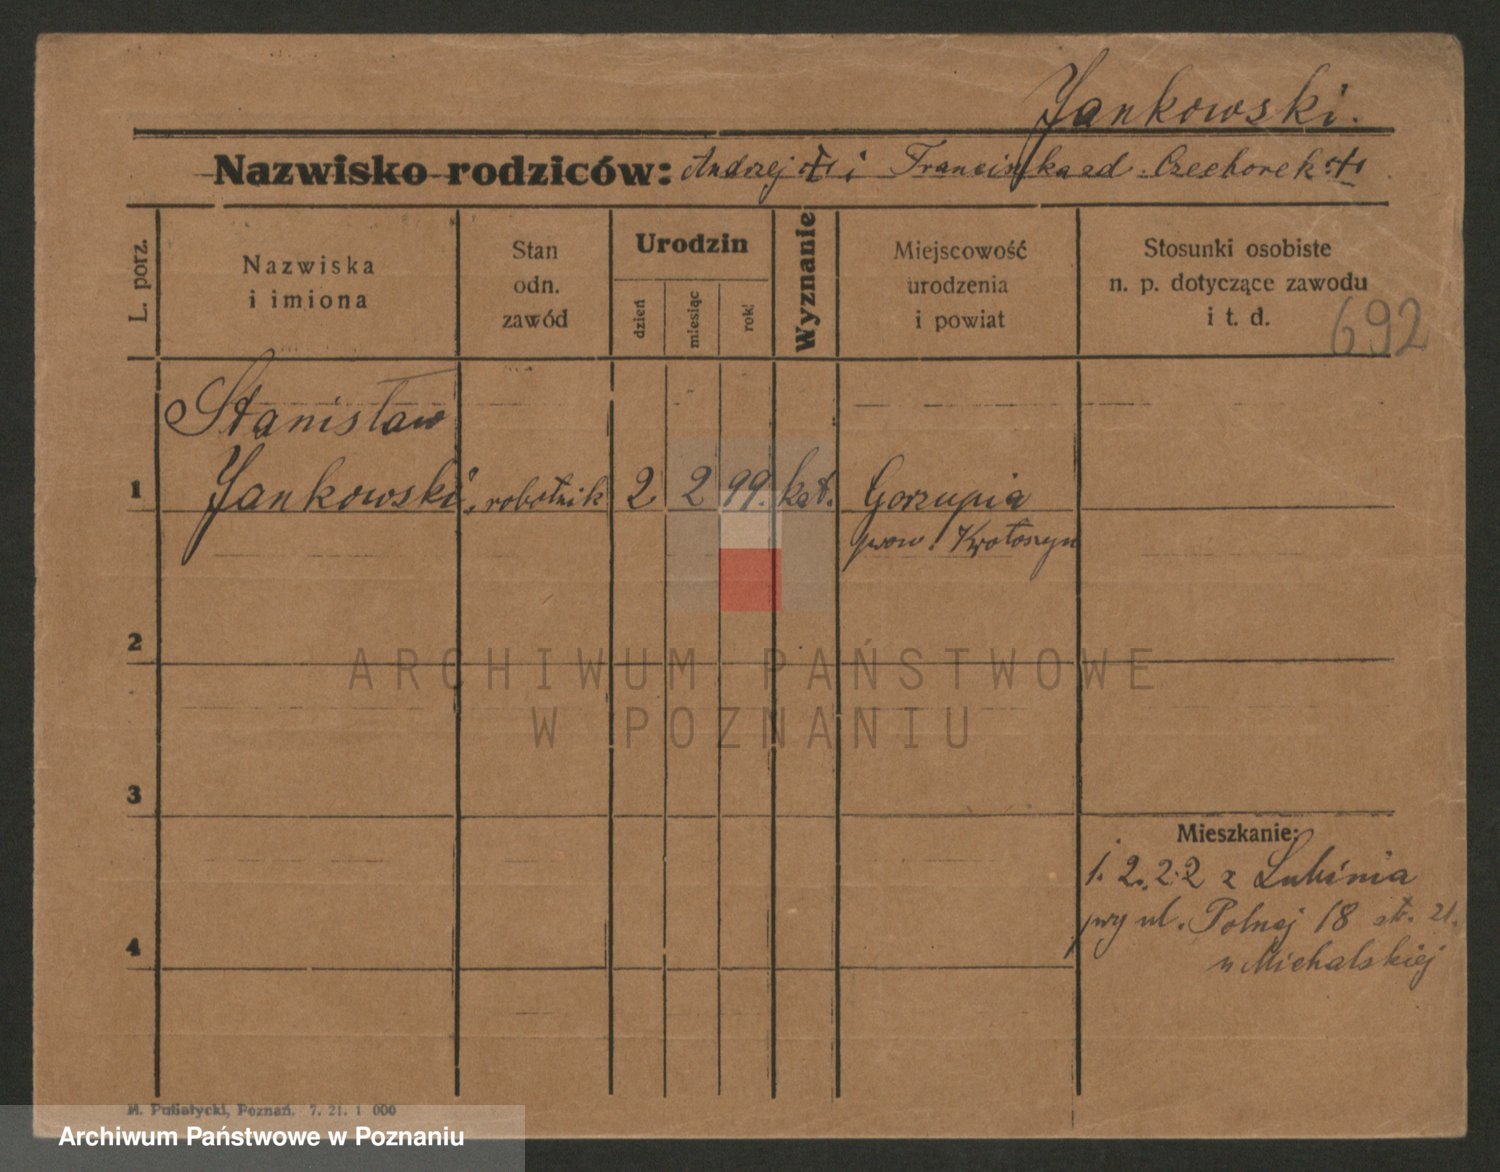 Jankowski.
Nazwisko rodziców: Andrzej i Franciszka zd. Czechorek
L. porz.
Nazwiska
i imiona
Stan
odn.
zawód
Urodzin
dzień
miesiąc
rok
Wyznanie
Miejscowość
urodzenia
i powiat
Stosunki osobiste
n. p. dotyczące zawodu
i t. d.
692
Stanisław
1 Jankowski, robotnik 2. 2 99. kat. Gorzupia
pow. Krotoszyn
2
3
Mieszkanie:
1. 2. 22 z Lubinia
przy ul. Polnej 18 str. 21.
4
u Michalskiej
ARCHIWUM PAŃSTWOWE
W POZNANIU
M. Putiatycki, Poznań. 7. 21. 1 000
Archiwum Państwowe w Poznaniu